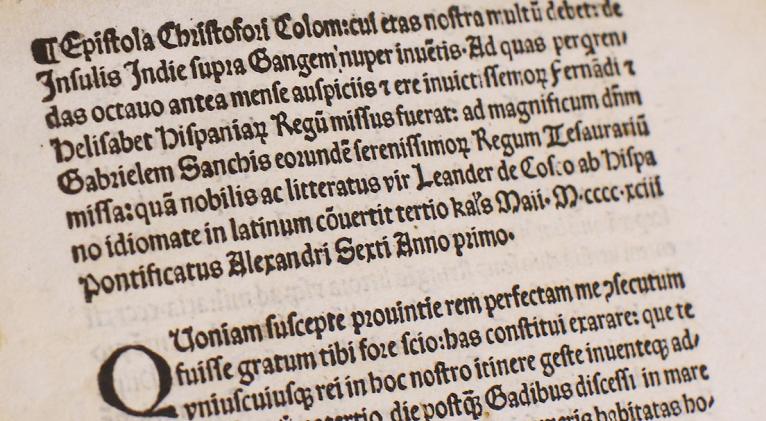 ¶Epistola Christofori Colom:cui etas nostra multũ debet: de
Insulis Indie supra Gangem nuper inuẽtis. Ad quas perqren⸗
das octauo antea mense auspiciis ⁊ ere inuictissemoꝝ Fernãdi ⁊
Helisabet Hispaniaꝝ Regũ missus fuerat: ad magnificum dñm
Gabrielem Sanchis eorundẽ serenissimoꝝ Regum Tesaurariũ
missa: quã nobilis ac litteratus vir Leander de Cosco ab Hispa
no idiomate in latinum cõuertit tertio kal's Maii. M.cccc.xciii
Pontificatus Alexandri Sexti Anno primo.
QUoniam suscepte prouintie rem perfectam me ꝯsecutum
fuisse gratum tibi fore scio: has constitui exarare: que te
vniuscuiusqꝫ rei in hoc nostro itinere geste inuenteqꝫ ad⸗
die postqꝫ̃ Gadibus discessi in mare
habitatas ho⸗